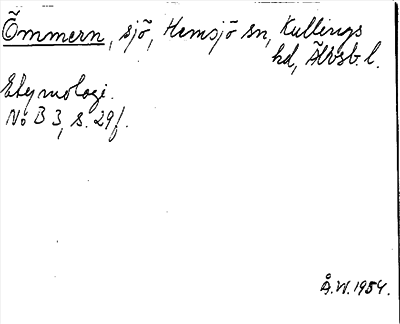 Ömmern, sjö, Hemsjö sn, Kullings
hd, Älvsb. l.
Etymologi.
No B 3, s. 29f.
Å.W. 1954.